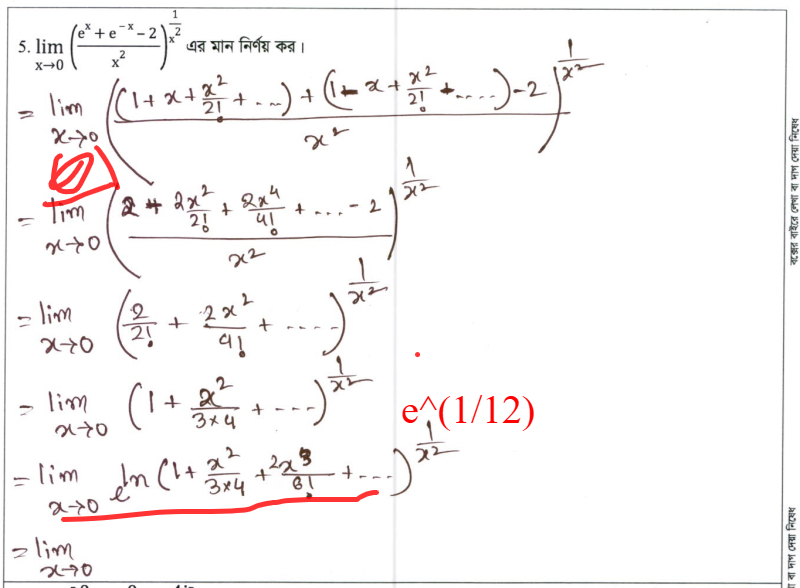 5. lim x→0 ((e^x + e^-x − 2)/x^2)^(1/x^2) এর মান নির্ণয় কর।
= lim x→0 (((1 + x + x^2/2! + ...) + (1 - x + x^2/2! - ....) - 2)/x^2)^(1/x^2)
= lim x→0 ((2 + 2x^2/2! + 2x^4/4! + .... - 2)/x^2)^(1/x^2)
= lim x→0 (2/2! + 2x^2/4! + ....)^(1/x^2)
= lim x→0 (1 + x^2/(3×4) + ....)^(1/x^2)
e^(1/12)
= lim x→0 e^ln (1 + x^2/(3×4) + 2x^3/6! + ...)^(1/x^2)
= lim x→0
বক্সের বাইরে লেখা বা দাগ দেয়া নিষেধ
বা দাগ দেয়া নিষেধ